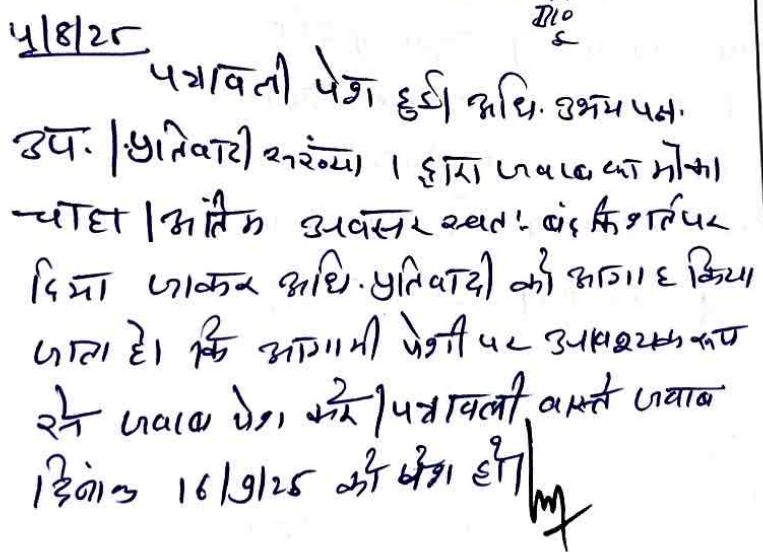 4/8/25
पत्रावली पेश हुई। अधि. उभय पक्ष.
उप. । प्रतिवादी संख्या 1 द्वारा जवाब का मौका
चाहा । अंतिम अवसर स्वत: बंद कि शर्त पर
दिया जाकर अधि. प्रतिवादी को आगाह किया
जाता है। कि आगामी पेशी पर आवश्यक रूप
से जवाब पेश करें । पत्रावली वास्ते जवाब
दिनांक 16/9/25 को पेश हो।